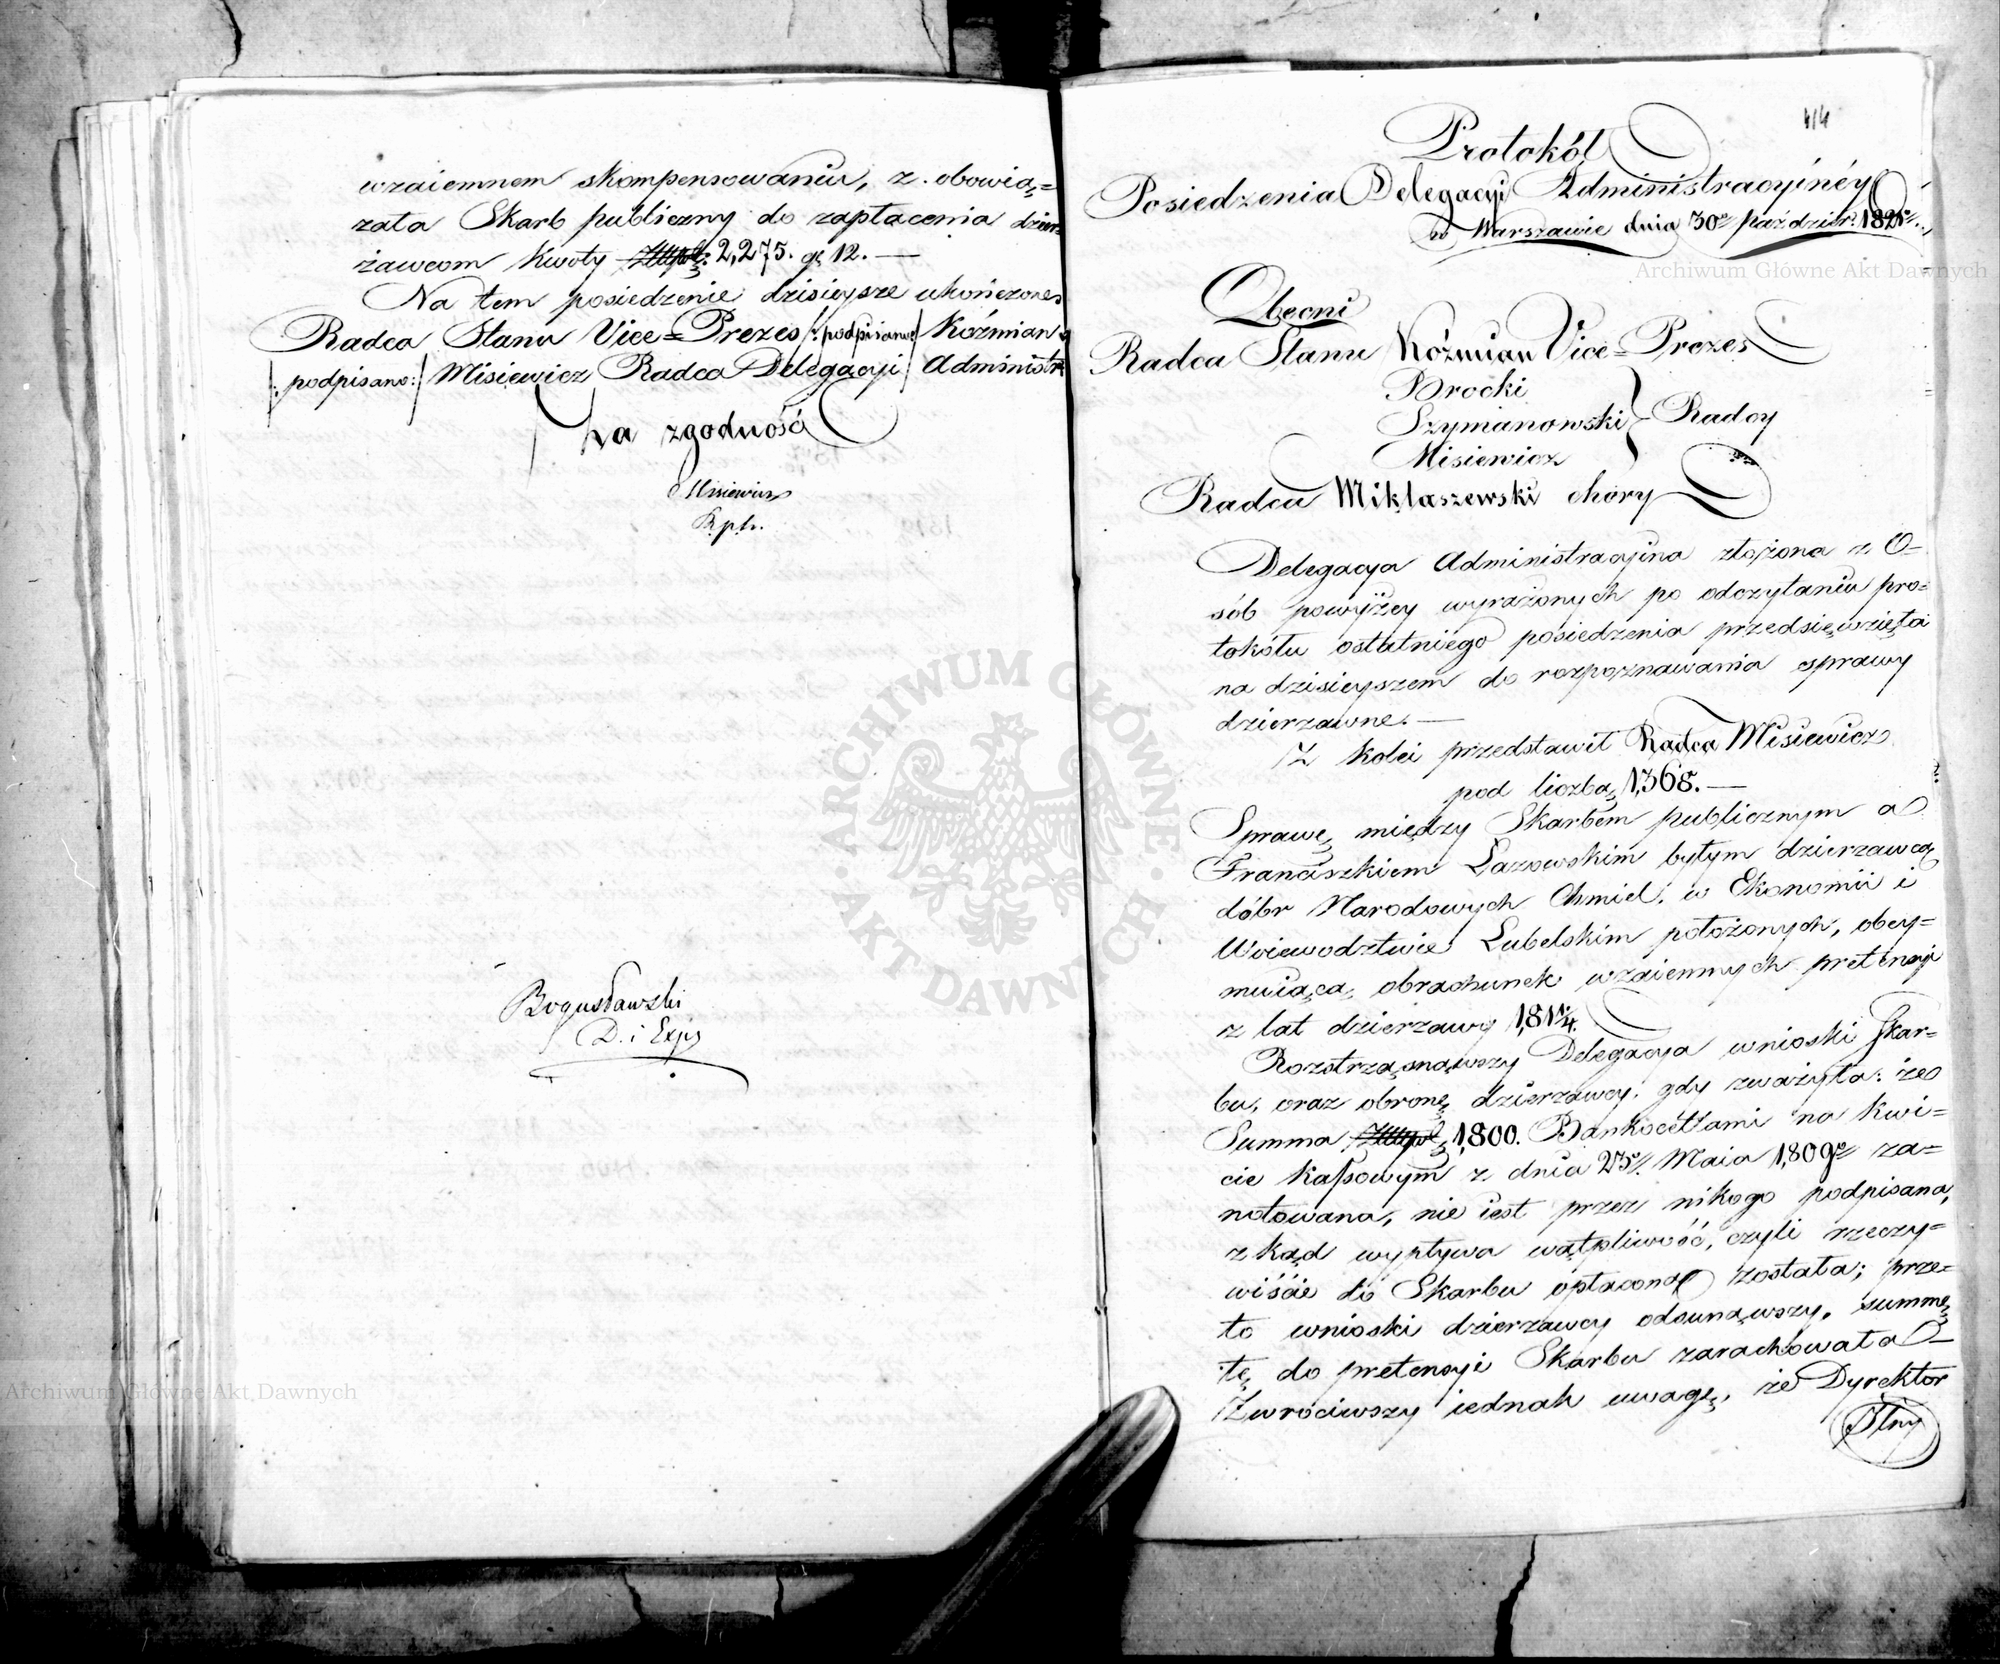 wzaiemnem skompensowaniu, z. obowią=
zata Skarb publiczny do zapłacenia dzier
żawcom kwoty Złłpol: 2,275. gr 12. —
Na tem posiedzenie dzisieysze ukończone
Radca Stanu Vice=Prezes /:podpisano:/ Koźmian
/:podpisano:/ Misiewicz Radca Delegacyi Administr
Za zgodność
Misiewicz
Bogusławski
D. i Exp
114
Protokół
Posiedzenia Delegacyi Administracyinéy
w Warszawie dnia 30go Paździer: 1821r.
Obecni
Radca Stanu Koźmian Vice=Prezes
Brocki
Szymanowski } Radcy
Misiewicz
Radca Miklaszewski chory
Delegacya Administracyina złożona z O=
sób powyżey wyrażonych po odczytaniu pro=
tokółu ostatniego posiedzenia przedsięwzięła
na dzisieyszem do rozpoznawania sprawy
dzierzawne. —
Z kolei przedstawił Radca Misiewicz
pod liczbą 1,368. —
Sprawę między Skarbem publicznym a
Franciszkiem Łazowskim byłym dzierzawcą
dóbr Narodowych Chmiel, w Ekonomii i
Woiewodztwie Lubelskim położonych, obey=
muiącą obrachunek wzaiemnych pretensyi
z lat dzierzawy
Rozstrząsnąwszy Delegacya wnioski Skar=
bu, oraz obronę dzierzawcy, gdy zważyła: że
Summa Złłpol: 1,800. Bankocetlami na kwi=
cie kassowym z dnia 23. Maia 1,809r za=
notowana, nie iest przez nikogo podpisana,
zkąd wypływa wątpliwość, czyli rzeczy=
wiście do Skarbu opłaconą została; prze=
to wnioski dzierzawcy odsunąwszy, summę
tę do pretensyi Skarbu zarachowała
Zwróciwszy iednak uwagę, że Dyrektor